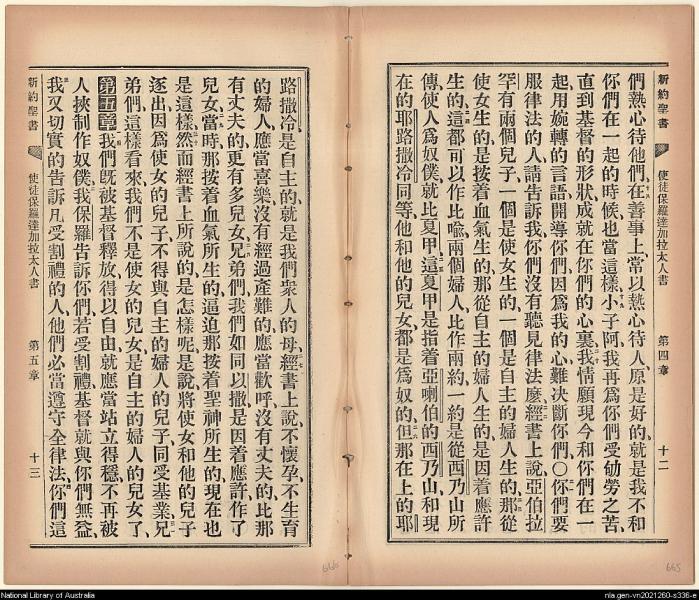 新約聖書 使徒保羅達加拉太人書 第四章 十二
們熱心待他們、在善事上常以熱心待人原是好的、就是我不和
你們在一起的時候、也當這樣、小子阿、我再為你們受劬勞之苦、
直到基督的形狀、成就在你們的心裏、我情願現今和你們在一
起、用婉轉的言語開導你們、因為我的心難決斷你們、〇你們要
服律法的人、請告訴我、你們沒有聽見律法麼、經書上說、亞伯拉
罕有兩個兒子、一個是使女生的、一個是自主的婦人生的、那從
使女生的、是按着血氣生的、那從自主的婦人生的、是因着應許
生的、這都可以作比喻、兩個婦人、比作兩約、一約是從西乃山所
傳、使人為奴僕、就比夏甲、這夏甲是指着亞喇伯的西乃山、和現
在的耶路撒冷同等、他和他的兒女、都是為奴的、但那在上的耶
路撒冷、是自主的、就是我們衆人的母、經書上說、不懷孕不生育
的婦人、應當喜樂、沒有經過產難的、應當歡呼、沒有丈夫的、比那
有丈夫的、更有多兒女、兄弟們、我們如同以撒、是因着應許作了
兒女、當時那按着血氣所生的、逼迫那按着聖神所生的、現在也
是這樣、然而經書上所說的是怎樣呢、是說將使女和他的兒子
逐出、因為使女的兒子、不得與自主的婦人的兒子、同受基業、兄
弟們、這樣看來、我們不是使女的兒女、是自主的婦人的兒女了、
第五章 我們既被基督釋放、得以自由、就應當站立得穩、不再被
人挾制作奴僕、我保羅告訴你們、若受割禮、基督就與你們無益、
我又切實的告訴凡受割禮的人、他們必當遵守全律法、你們這
新約聖書 使徒保羅達加拉太人書 第五章 十三
666
665
National Library of Australia
nla.gen-vn2021260-s336-e